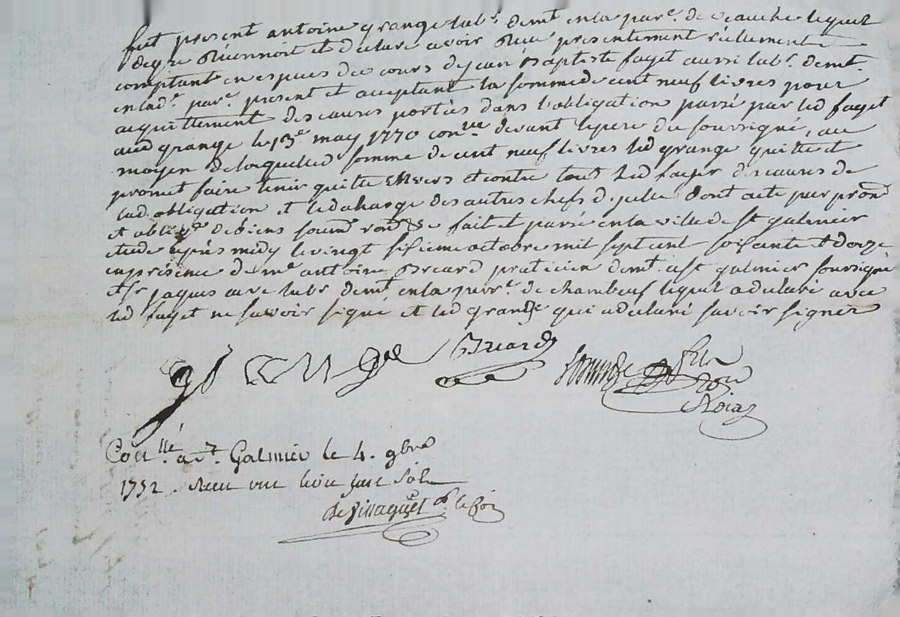 fut present antoine grange lab.r demt en la par.e de veauche lequel
de gre Reconnoit et declare avoir Receu presentement réelement
comptant en especes de cours de jean Baptiste fayet aussi lab.r demt.
en lad. par.e present et acceptant la somme de cent neuf livres pour
acquittement des causes portées dans l'obligation passée par led fayet
aud grange le 13.e may 1770 con.ée devant le pere du soussigné, au
moyen de laquelle d somme de cent neuf livres led grange quitte et
promet faire tenir quitte Envers et contre tous led fayet des causes de
lad obligation et le décharge des autres chefs d'icelle dont acte par prom
et oblig.on de biens soum.on ren.on &c fait et passé en la ville de st galmier
etude après midy le vingt sixieme octobre mil sept cent soixante et douze
en présence de m.e antoine Breard praticien demt. a st galmier soussigné
et sr jaques lab.r demt. en la parr.e de chambeuf lequel a declaré avec
led fayet ne savoir signe et led grange qui a declaré savoir signer
grange Breard
Con.llé a st Galmier le 4. gbre
1772. Receu